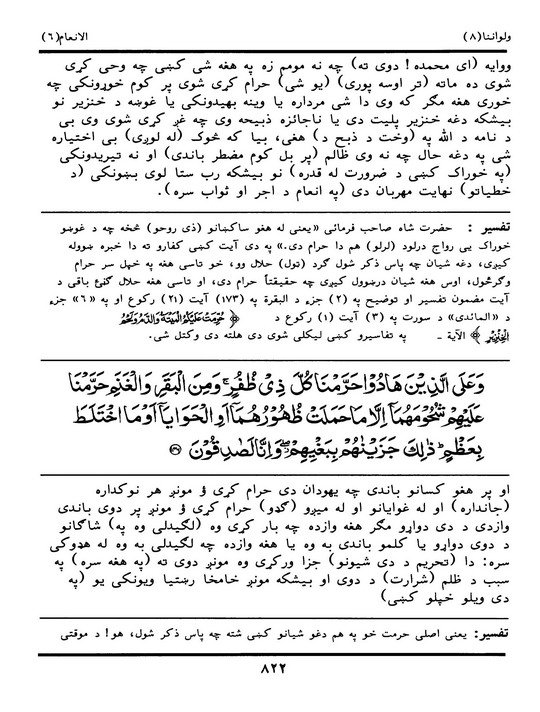 ولواننا(٨) الانعام(٦)
ووایه (ای محمده ! دوی ته) چه نه مومم زه په هغه شی کښی چه وحی کړی
شوی ده ماته (تر اوسه پوری) (یو شی) حرام کړی شوی پر کوم خوړونکی چه
خوری هغه مگر که وی دا شی مرداره یا وینه بهیدونکی یا غوښه د خنزیر نو
بیشکه دغه خنزیر پلیت دی یا ناجائزه ذبیحه وی چه غږ کړی شوی وی بی
د نامه د الله په (وخت د ذبح د) هغی، بیا که څوک (له لوږی) بی اختیاره
شی په دغه حال چه نه وی ظالم (پر بل کوم مضطر باندی) او نه تیریدونکی
(په خوراک کښی د ضرورت له قدره) نو بیشکه رب ستا لوی بښونکی (د
خطیاتو) نهایت مهربان دی (په انعام د اجر او ثواب سره).
تفسیر : حضرت شاه صاحب فرمائی «یعنی له هغو ساکښانو (ذی روحو) څخه چه د غوښو
خوراک یی رواج درلود (لرلو) هم دا حرام دی.» په دی آیت کښی کفارو ته دا خبره ښووله
کیږی، دغه شیان چه پاس ذکر شول گرد (تول) حلال وو، خو تاسی هغه په خپل سر حرام
وگرځول، اوس هغه شیان درښوول کیږی چه حقیقتاً حرام دی، او تاسی هغه حلال گڼئ باقی د
آیت مضمون تفسیر او توضیح په (٢) جزء د البقرة په (١٧٣) آیت (٢١) رکوع او په «٦» جزء
د «المائدی» د سورت په (٣) آیت (١) رکوع د ﴿ حُرِّمَتْ عَلَيْكُمُ الْمَيْتَةُ وَالدَّمُ وَلَحْمُ
الْخِنْزِيْرِ ﴾ الآیة ـ په تفاسیرو کښی لیکلی شوی دی هلته دی وکتل شی.
وَعَلَى الَّذِيْنَ هَادُوْا حَرَّمْنَا كُلَّ ذِىْ ظُفُرٍ ۚ وَمِنَ الْبَقَرِ وَالْغَنَمِ حَرَّمْنَا
عَلَيْهِمْ شُحُوْمَهُمَآ اِلَّا مَا حَمَلَتْ ظُهُوْرُهُمَآ اَوِ الْحَوَايَآ اَوْ مَا اخْتَلَطَ
بِعَظْمٍ ؕ ذٰلِكَ جَزَيْنٰهُمْ بِبَغْيِهِمْ ۖ وَاِنَّا لَصٰدِقُوْنَ
او پر هغو کسانو باندی چه یهودان دی حرام کړی ؤ مونږ هر نوکداره
(جانداره) او له غوایانو او له میږو (گډو) حرام کړی ؤ مونږ پر دوی باندی
وازدی د دی دواړو مگر هغه وازده چه بار کړی وه (لگیدلی وه په) شاگانو
د دوی دواړو یا کلمو باندی به وه یا هغه وازده چه لگیدلی به وه له هډوکی
سره: دا (تحریم د دی شیونو) جزا ورکړی وه مونږ دوی ته (په هغه سره) په
سبب د ظلم (شرارت) د دوی او بیشکه مونږ خامخا رښتیا ویونکی یو (په
دی ویلو خپلو کښی)
تفسیر: یعنی اصلی حرمت خو په هم دغو شیانو کښی شته چه پاس ذکر شول، هو! د موقتی
٨٢٢